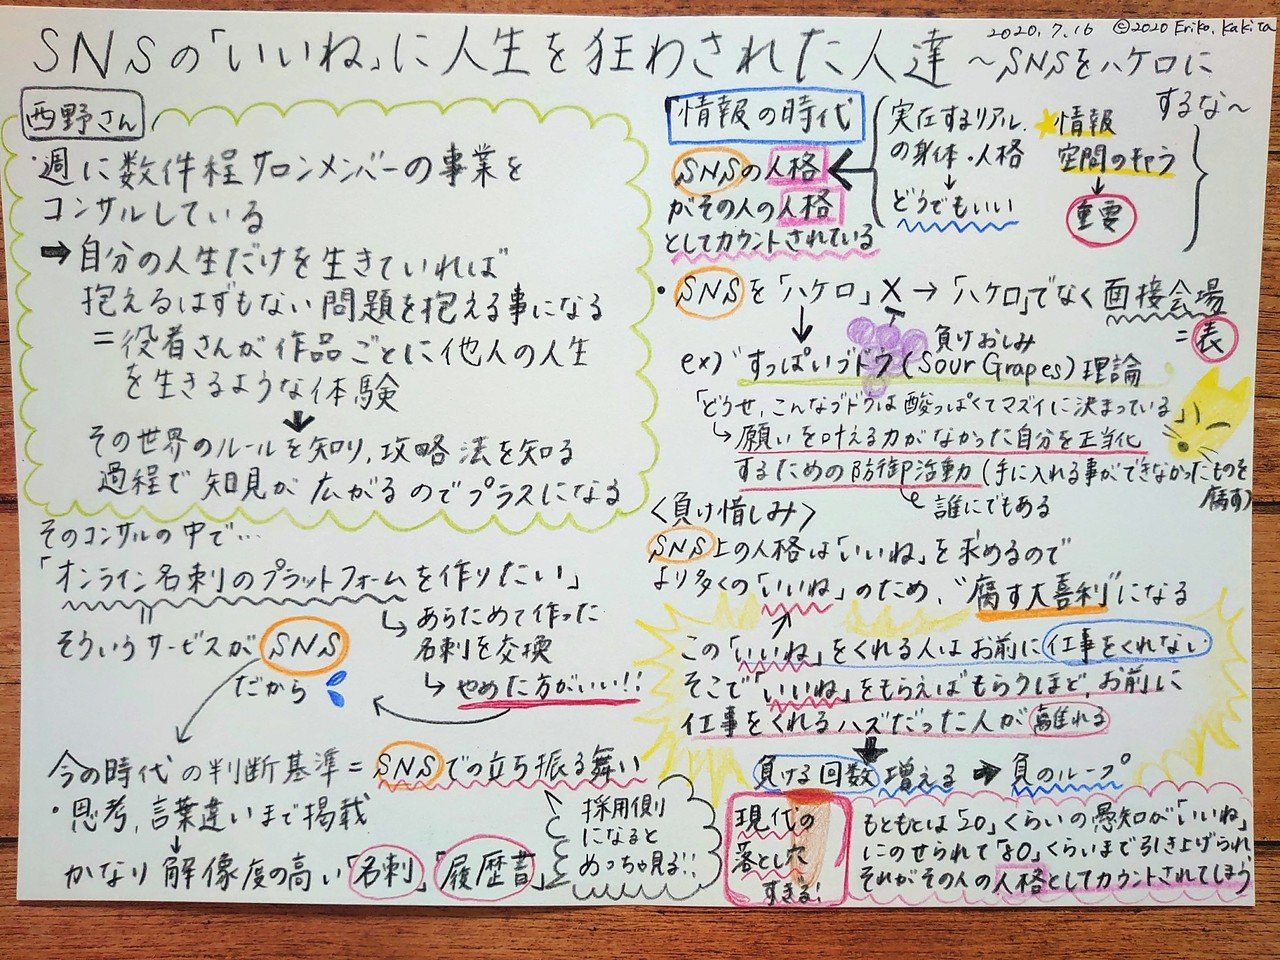 2020.7.16 ©2020 Eriko.Kakita
SNSの「いいね」に人生を狂わされた人達～SNSをハケロに
するな～
西野さん
・週に数件程サロンメンバーの事業を
コンサルしている
➡自分の人生だけを生きていれば
抱えるはずもない問題を抱える事になる
=役者さんが作品ごとに他人の人生
を生きるような体験
その世界のルールを知り、攻略法を知る
過程で知見が広がるのでプラスになる
そのコンサルの中で…
「オンライン名刺のプラットフォームを作りたい」
あらためて作った
名刺を交換
やめた方がいい!!
そういうサービスがSNS
だから
今の時代の判断基準=SNSでの立ち振る舞い
・思考、言葉遣いまで掲載
かなり解像度の高い「名刺」「履歴書」
採用側
になると
めっちゃ見る!!
情報の時代
SNSの人格
がその人の人格
としてカウントされている
実在するリアル
の身体・人格
↓
どうでもいい
★情報
空間の
↓
重要
・SNSを「ハケロ」X→「ハケロ」でなく面接会場
=表
負けおしみ
ex)すっぱいブドウ(Sour Grapes)理論
「どうせ、こんなブドウは酸っぱくてマズイに決まっている」
願いを叶える力がなかった自分を正当化
するための防御活動(手に入れる事ができなかったものを
腐す)
誰にでもある
〈負け惜しみ〉
SNS上の人格は「いいね」を求めるので
より多くの「いいね」のため、"腐す大喜利"になる
この「いいね」をくれる人はお前に仕事をくれない
そこで「いいね」をもらえばもらうほど、お前に
仕事をくれるハズだった人が離れる
負ける回数増える➡負のループ
現代の
落とした
すぎる!
もともとは「20」くらいの愚知が「いいね」
にのせられて「80」くらいまで引き上げられ、
それがその人の人格としてカウントされてしまう